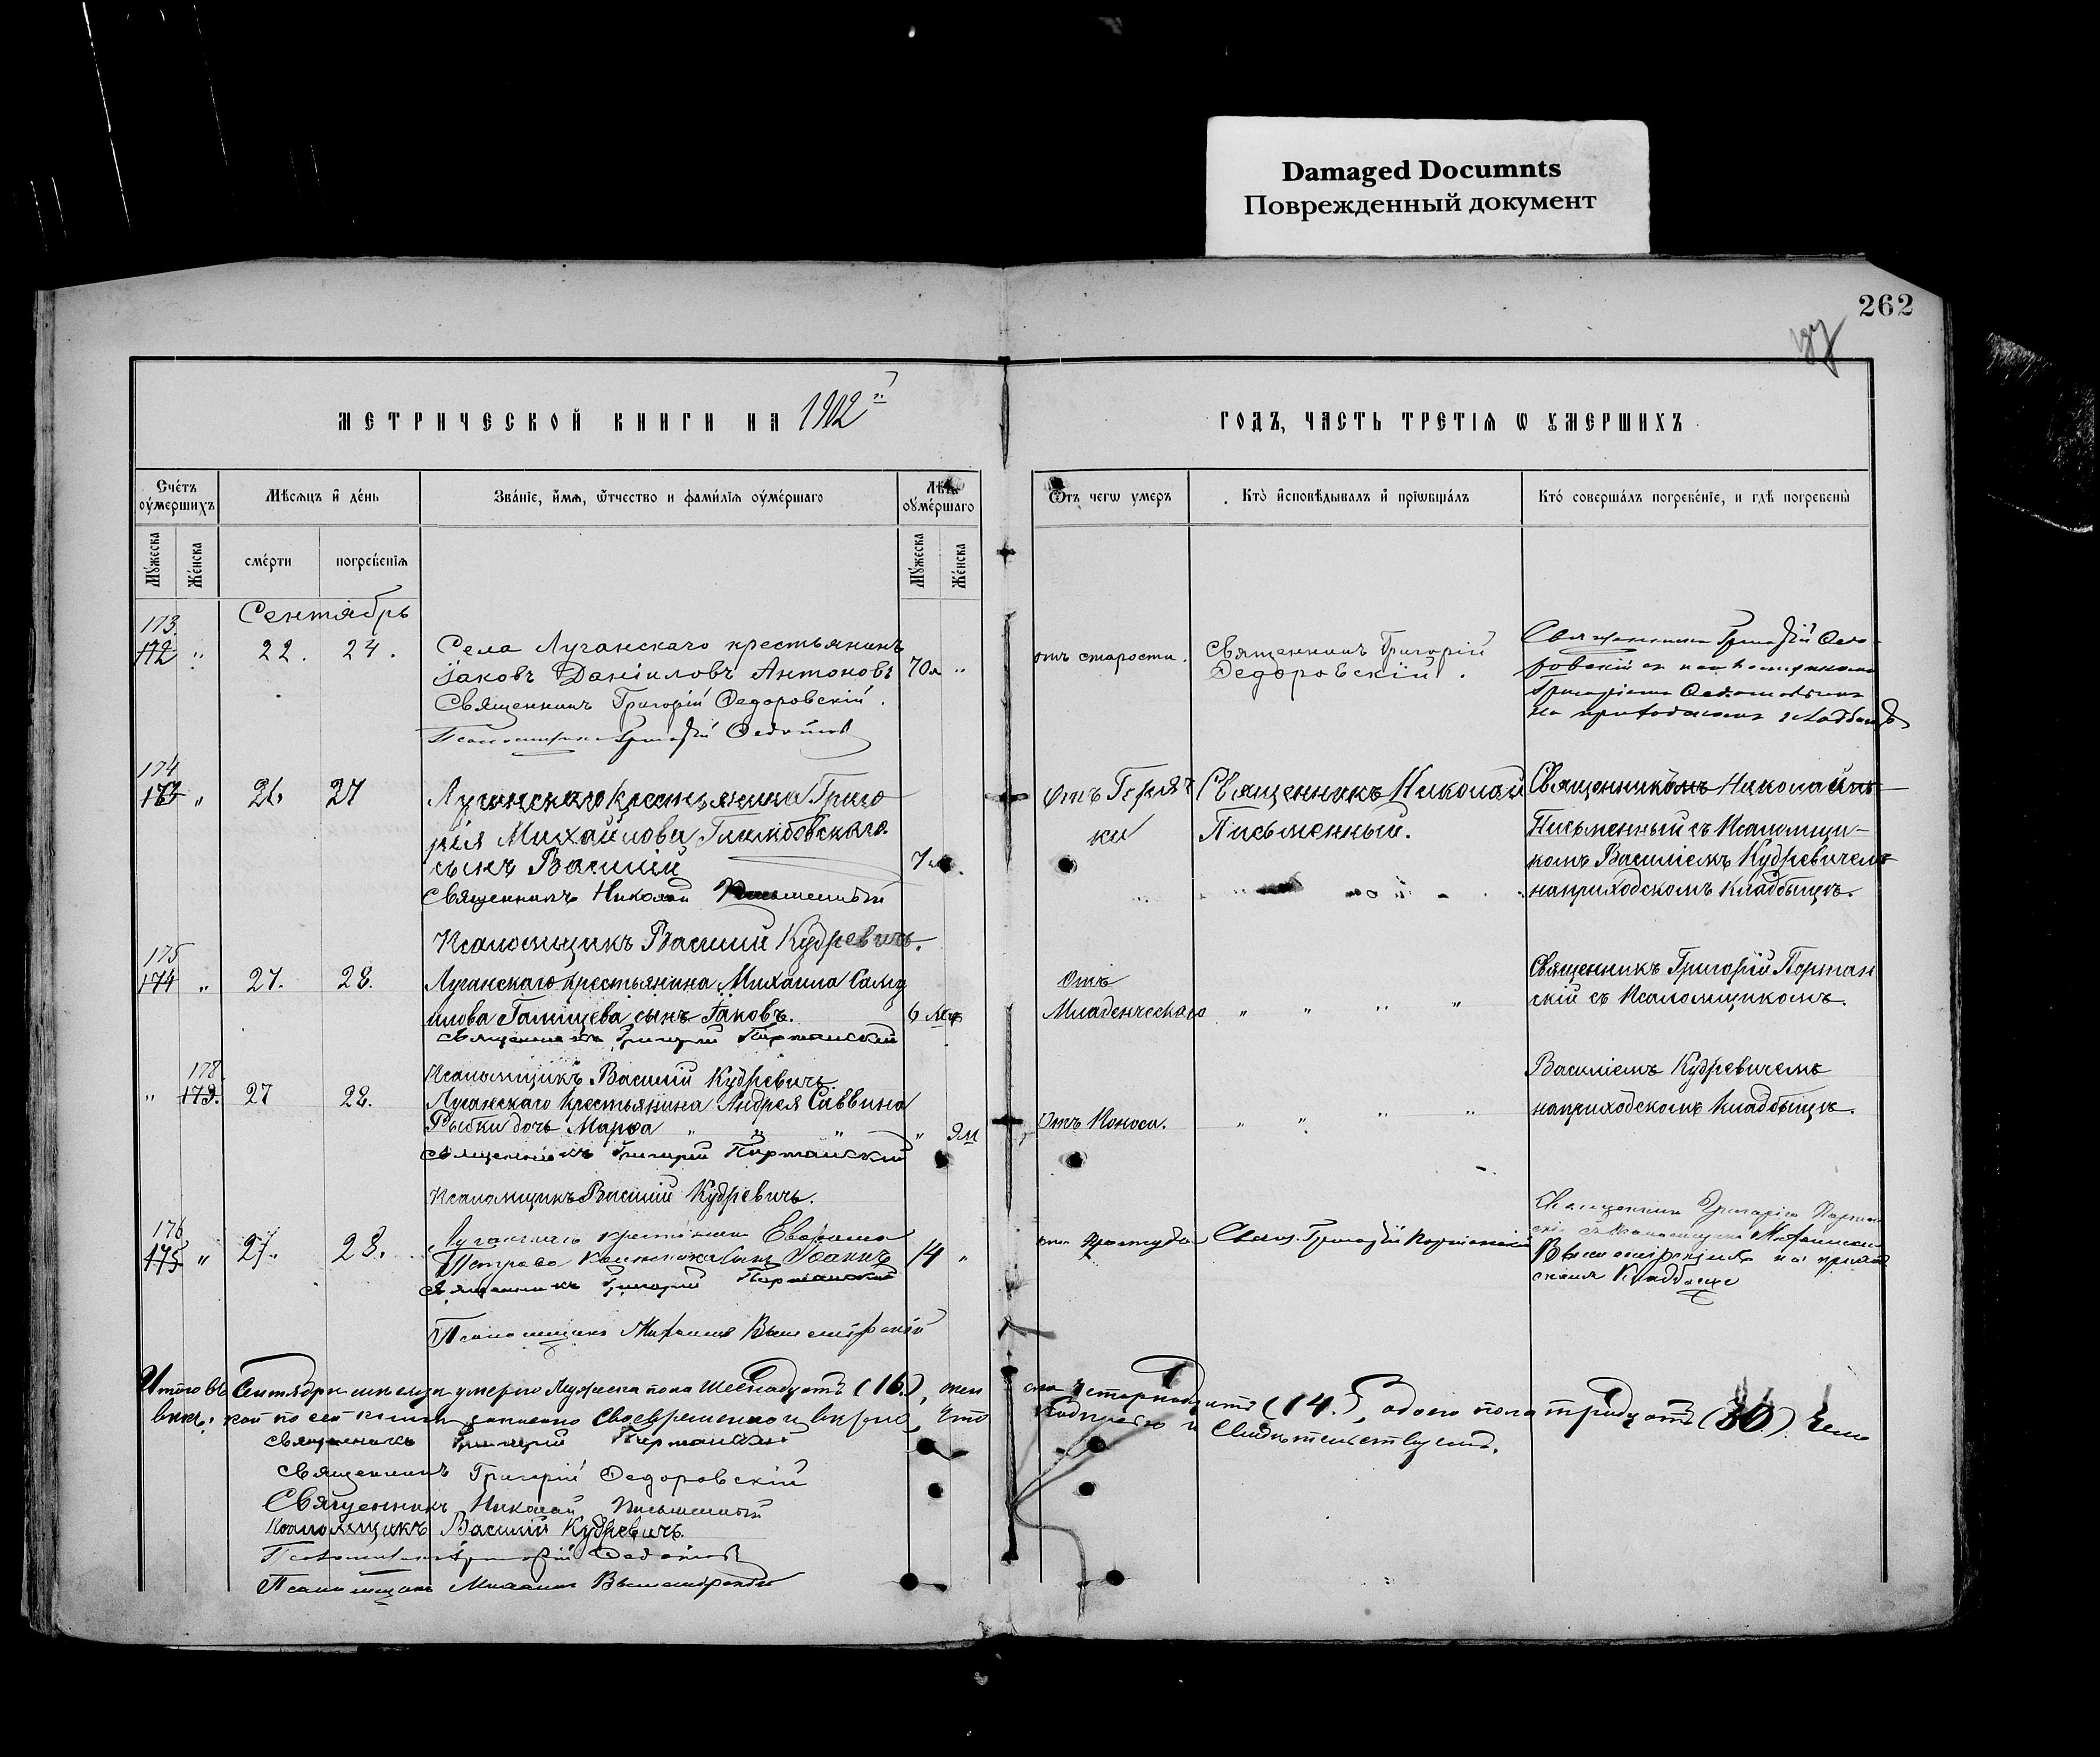 Damaged Documnts
Поврежденный документ
262
МЕТРИЧЕСКОЙ КНИГИ НА 1902 й
ГОДЪ, ЧАСТЬ ТРЕТІѦ Ѡ ОУМЕРШИХЪ
Сче́тъ оу҆ме́ршихъ
Мѣ́сѧцъ и҆ де́нь
Зва́ніе, и҆́мѧ, ѻ҆́тчество и фами́лїѧ оу҆ме́ршаго
Лѣ́та оу҆ме́ршаго
Ѿ чегѡ̀ умеръ
Кто̀ и҆сповѣ́дывалъ и҆ прїѡбща́лъ
Кто́ соверша́лъ погребе́нїе, и гдѣ̀ погребены̀
Мꙋ́жеска
Же́нска
сме́рти
погребе́нїѧ
Мꙋ́жеска
Же́нска
Сентябрь
173.
172 " 22. 24.
Села Луганскаго крестьянинъ
Іаковъ Даніиловъ Антоновъ 70л "
Священникъ Григорій Федоровскій.
Псаломщикъ Григорій Федотов
отъ старости.
Священникъ Григорій
Федоровскій.
Священникъ Григорій Федо-
ровскій съ псаломщикомъ
Григоріемъ
на приходскомъ кладбищѣ
174
173 " 26. 27
Луганскаго крестьянина Григо
рія Михайлова
сынъ Василій 7
Священникъ Николай Письменный
Псаломщикъ Василій Кудревичъ.
Отъ Горяч
ки
Священникъ Николай
Письменный.
Священникомъ Николай
Письменный съ Псаломщи-
комъ Василіемъ Кудревичемъ
на приходскомъ кладбищѣ.
175
174 " 27. 28.
Луганскаго крестьянина Михаила Саму
илова Галищева сынъ Іаковъ. 6 м
Священникъ Григорій Портанскій
Псаломщикъ Василій Кудревичъ.
Отъ
Младенческаго " " " "
Священникъ Григорій Портан
скій съ Псаломщикомъ
Василіемъ Кудревичемъ
на приходскомъ кладбищѣ.
178.
" 173. 27 28.
Луганскаго крестьянина Андрея Саввина
Рыбки дочь Марѳа " " " "
Священникъ Григорій Портанскій
Псаломщикъ Василій Кудревичъ.
Отъ Поноса. " " " "
176
175 " 27. 28.
Луганскаго крестьянина
Петрова сынъ Іоаннъ 14 "
Священникъ Григорій Портанскій
Псаломщикъ Михаилъ
отъ простуды
Свящ. Григорій Портанскій
Священникъ Григорій Портан
скій съ Псаломщикомъ Михаиломъ
на приход
скомъ кладбищѣ
Итого въ Сентябрѣ мѣсяцѣ умерло мужеска пола Шестнадцать (16.), жен
ска четырнадцать (14.), обоего пола тридцать (30.)
записано своевременно и вѣрно, что
подписью и свидѣтельствуемъ.
Священникъ Григорій Портанскій
Священникъ Григорій Федоровскій
Священникъ Николай Письменный
Псаломщикъ Василій Кудревичъ.
Псаломщикъ Григорій Федотов
Псаломщикъ Михаилъ